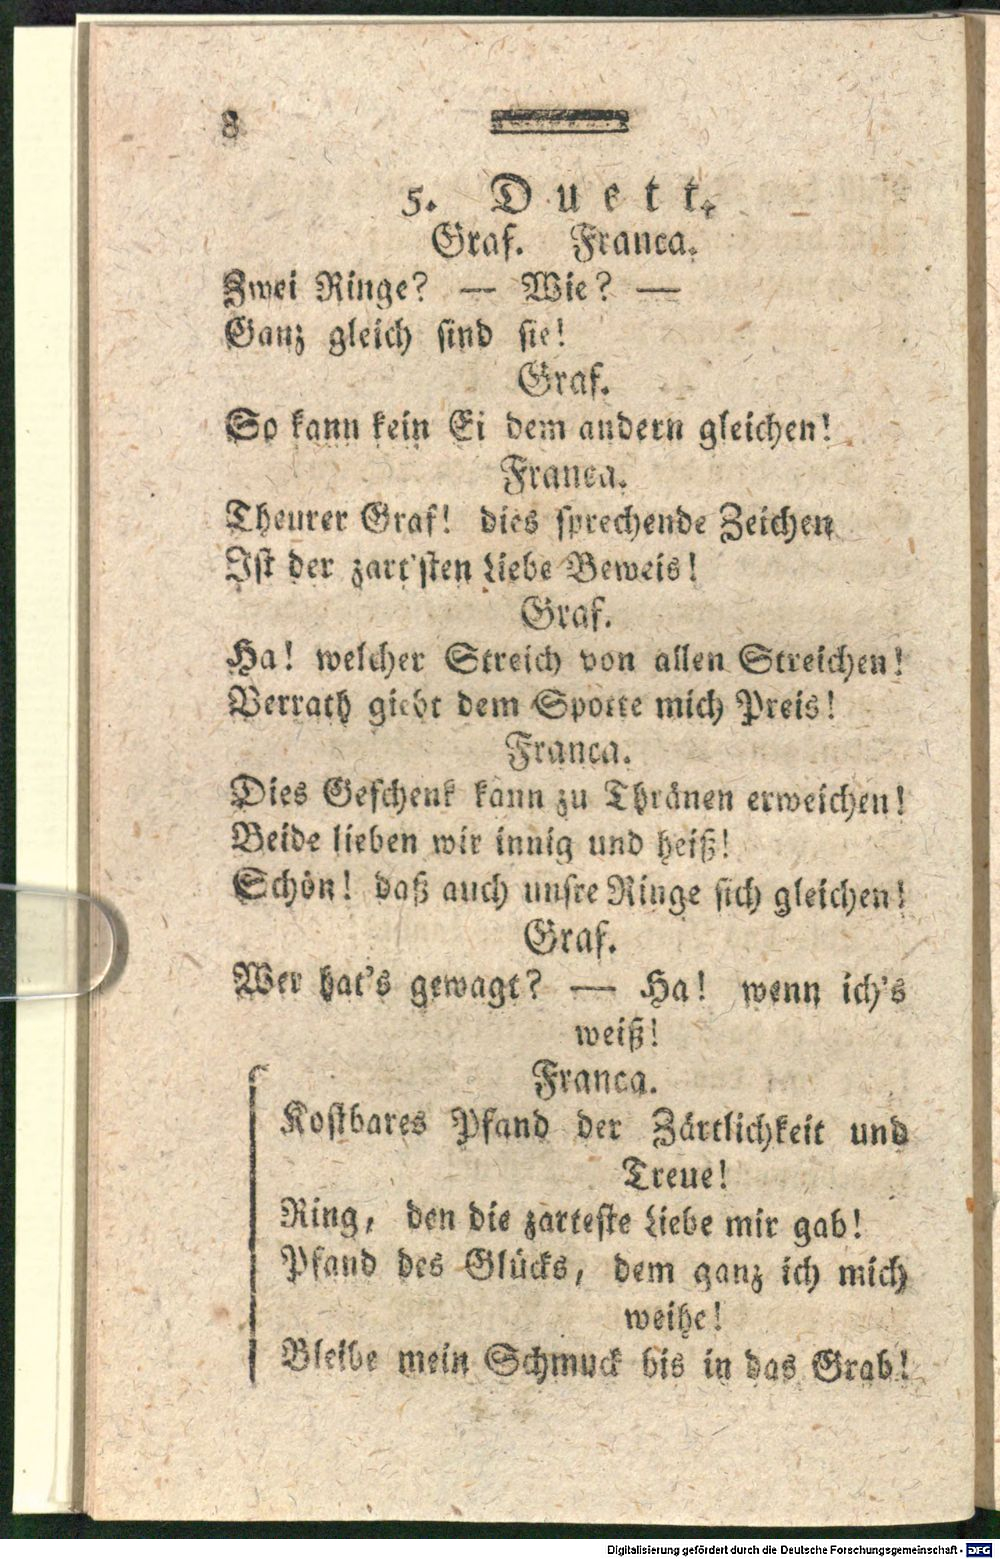 8
5. Duett.
Graf. Franca.
Zwei Ringe? — Wie? —
Ganz gleich sind sie!
Graf.
So kann kein Ei dem andern gleichen!
Franca.
Theurer Graf! dies sprechende Zeichen
Ist der zart'sten Liebe Beweis!
Graf.
Ha! welcher Streich von allen Streichen!
Verrath giebt dem Spotte mich Preis!
Franca.
Dies Geschenk kann zu Thränen erweichen!
Beide lieben wir innig und heiß!
Schön! daß auch unsre Ringe sich gleichen!
Graf.
Wer hat's gewagt? — Ha! wenn ich's
weiß!
Franca.
Kostbares Pfand der Zärtlichkeit und
Treue!
Ring, den die zarteste Liebe mir gab!
Pfand des Glücks, dem ganz ich mich
weihe!
Bleibe mein Schmuck bis in das Grab!
Digitalisierung gefördert durch die Deutsche Forschungsgemeinschaft - DFG